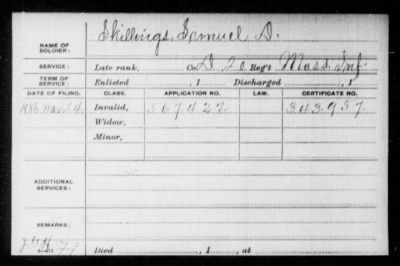 Skillings, Samuel D.
NAME OF SOLDIER:
SERVICE: Late rank, Co. D 20 Reg't Mass. Inf.
TERM OF SERVICE: Enlisted , 1 Discharged , 1
DATE OF FILING. CLASS. APPLICATION NO. LAW. CERTIFICATE NO.
1886 Nov 24. Invalid, 567.422 343.957
Widow,
Minor,
ADDITIONAL SERVICES:
REMARKS:
Died , 1 , at